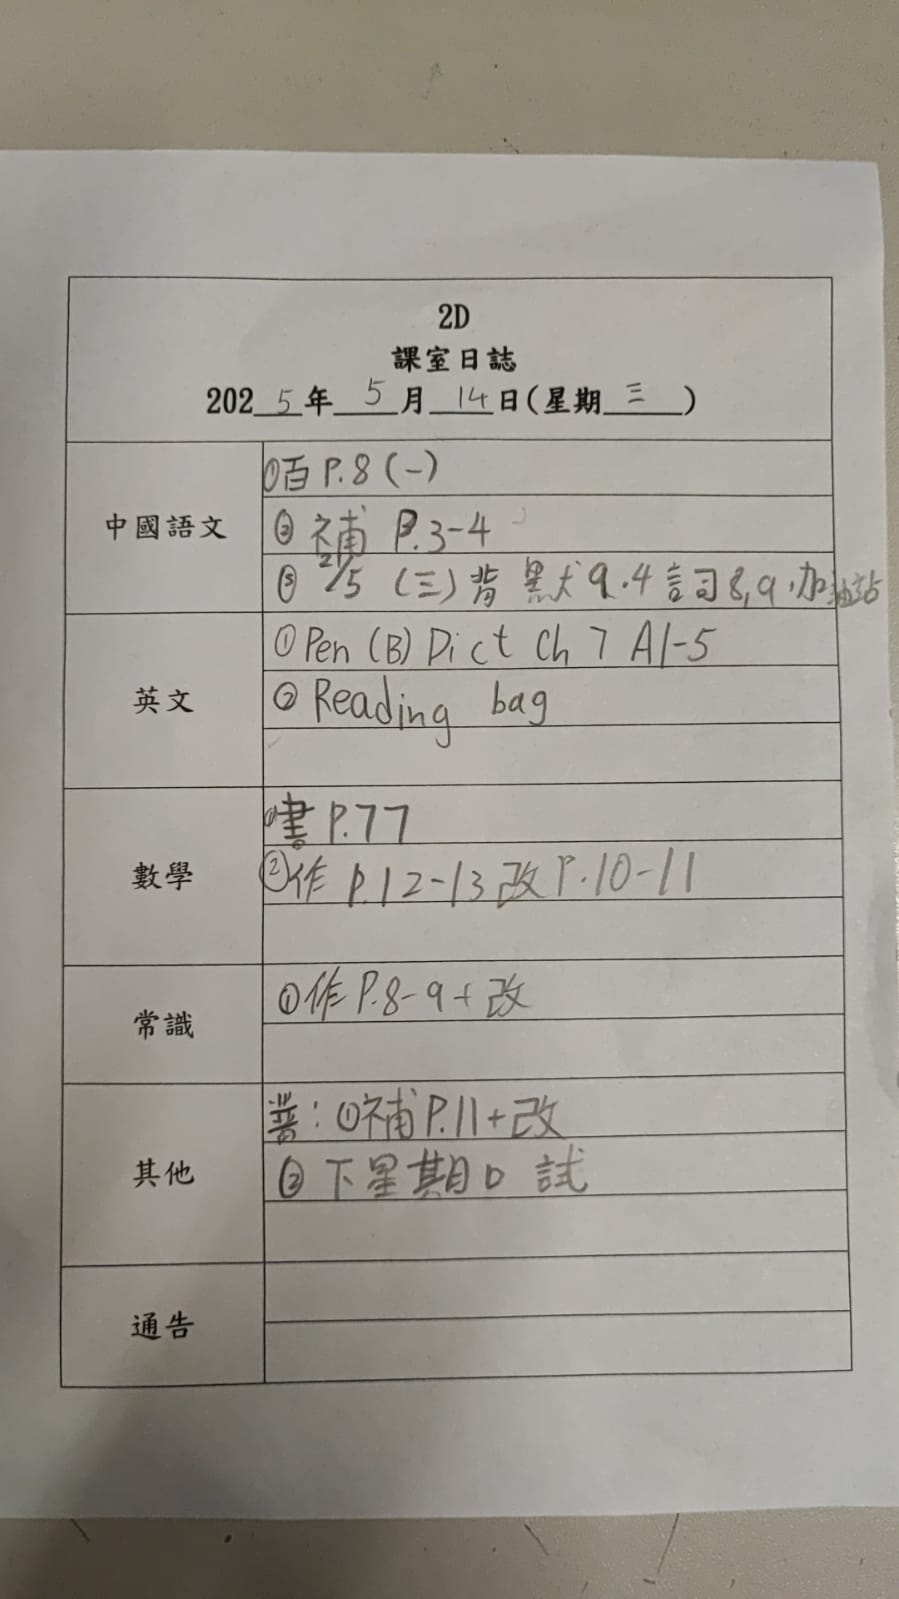 2D
課室日誌
2025年5月14日(星期三)
中國語文
①百 P.8 (一)
② 補 P.3-4
③ 21/5 (三) 背 默 9.4 詞 8,9,加油站
英文
① Pen (B) Dict Ch 7 A1-5
② Reading bag
數學
①書 P.77
②作 P.12-13 改 P.10-11
常識
①作 P.8-9 + 改
其他
普:①補 P.11 + 改
② 下星期口試
通告